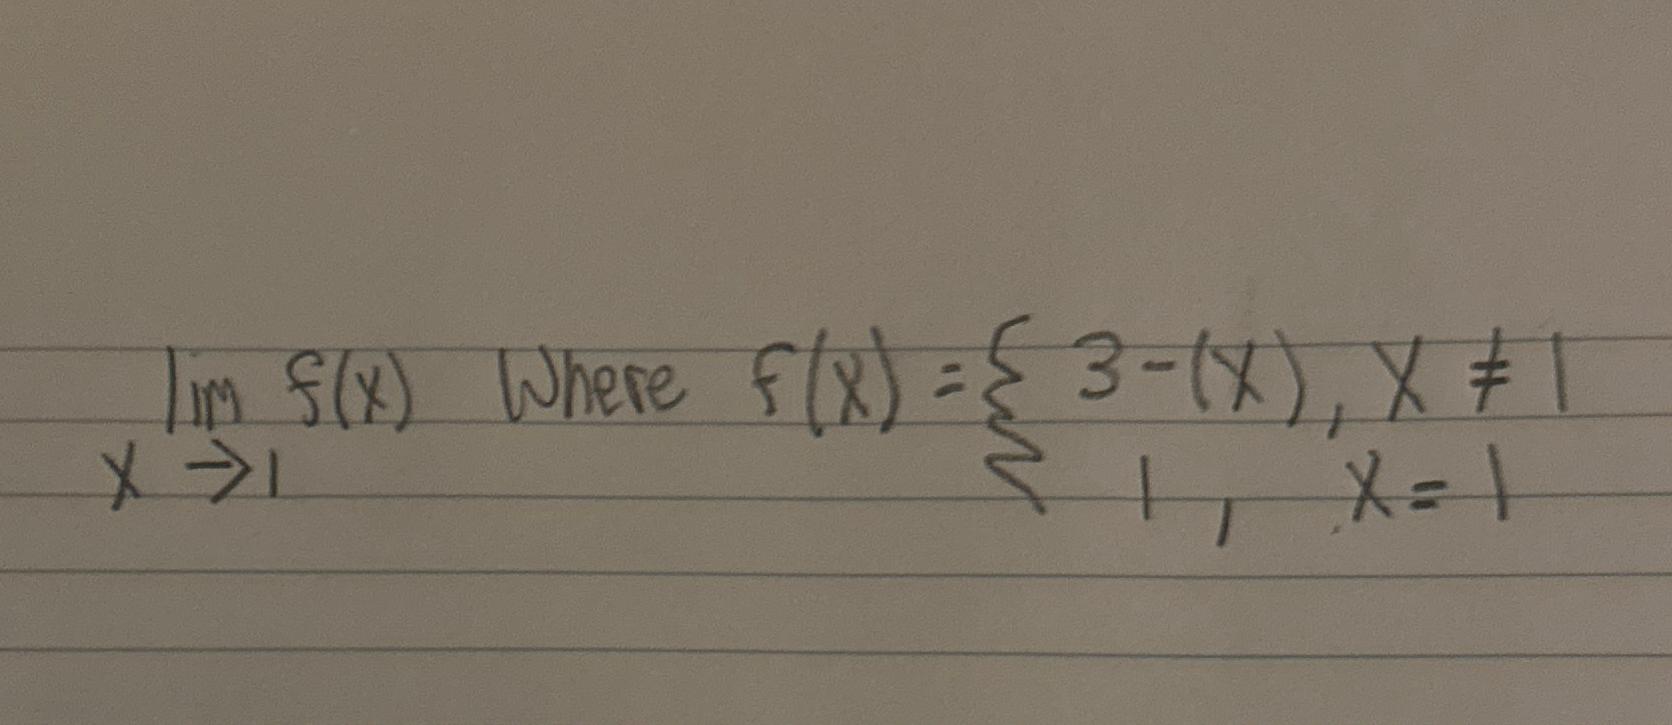 lim f(x) Where f(x) = { 3-(x), x ≠ 1
x →1 1, x = 1